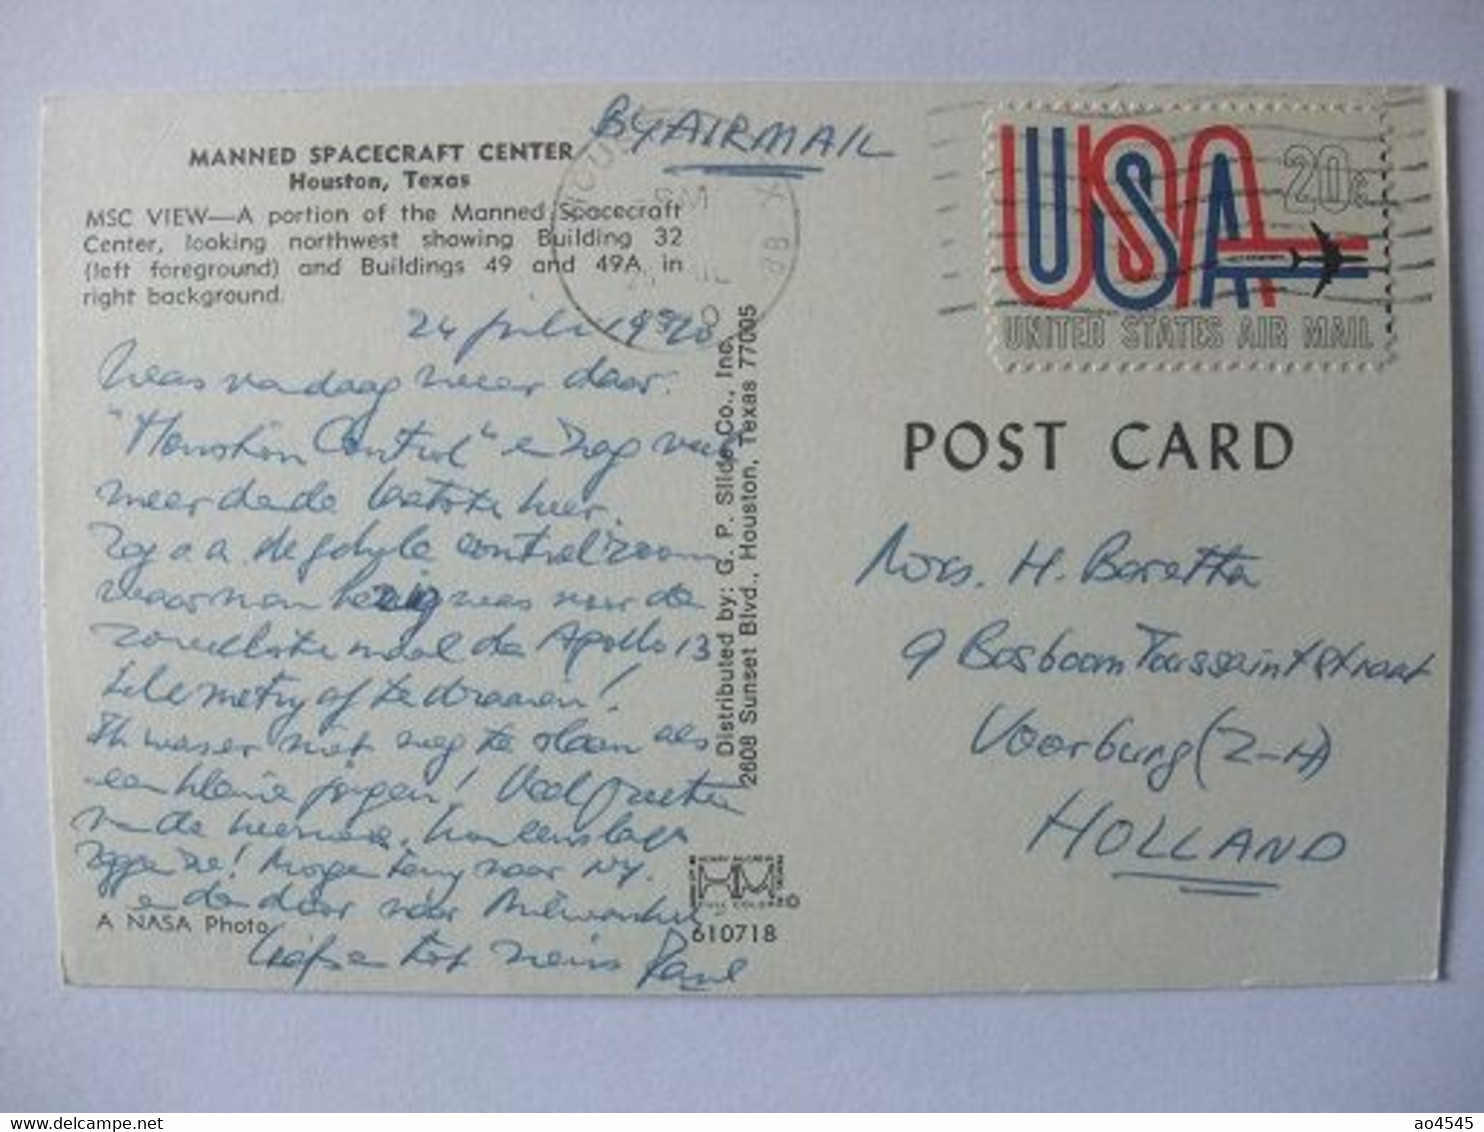 MANNED SPACECRAFT CENTER
Houston, Texas
MSC VIEW—A portion of the Manned Spacecraft
Center, looking northwest showing Building 32
(left foreground) and Buildings 49 and 49A in
right background.
BY AIRMAIL
USA 20c
UNITED STATES AIR MAIL
24 juli 1970
Was vandaag weer daar.
"Houston Control" en zag
meer dan de laatste keer.
Zag o.a. de control room
waar men bezig was voor de
Apollo 13
telemetry af te draaien!
Ik was er niet weg te slaan als
een kleine jongen! Veel
van de
! Morgen terug naar NY.
en dan door naar Milwaukee
Liefs en tot ziens Paul
A NASA Photo
Distributed by: G. P. Slide Co., Inc.
2608 Sunset Blvd., Houston, Texas 77005
FULL COLOR
610718
POST CARD
Mrs. H. Baretta
9 Bosboom Toussaintstraat
Voorburg (Z-H)
HOLLAND
ao4545